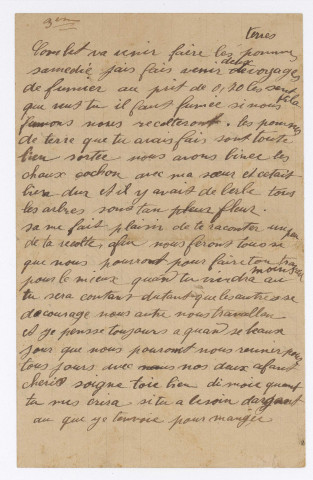 3em
terres
Comlet va venir faire les pommes
samedie jais fais venir deux voyages
de fumier au prit de 0,50 les cent kilo
que veut tu il faut fumée si nous
fumons nous recolteront. les pommes
de terre que tu avais fais sont toute
bien sortie nous avons biner les
choux cochon avec ma sœur il était
bien dur et il y avait de lerbe tous
les arbres sous tan pleur fleur.
sa me fait plaisir de te raconter un peu
de la recolte, afin nous feront tous se
que nous pourront pour faire ton travail
pour le mieux quand tu viendra au moins
tu sera contant dutant que les autre se
decourage nous autre nous travallon
et je pensse toujours a quand se beaux
jour que nous pouront nous reunir pour
tous jours avec nos deux afant
cheris soigne toie bien di moie quant
tu mes crira si tu a besoin dargent
au que je tenvoie pour manger